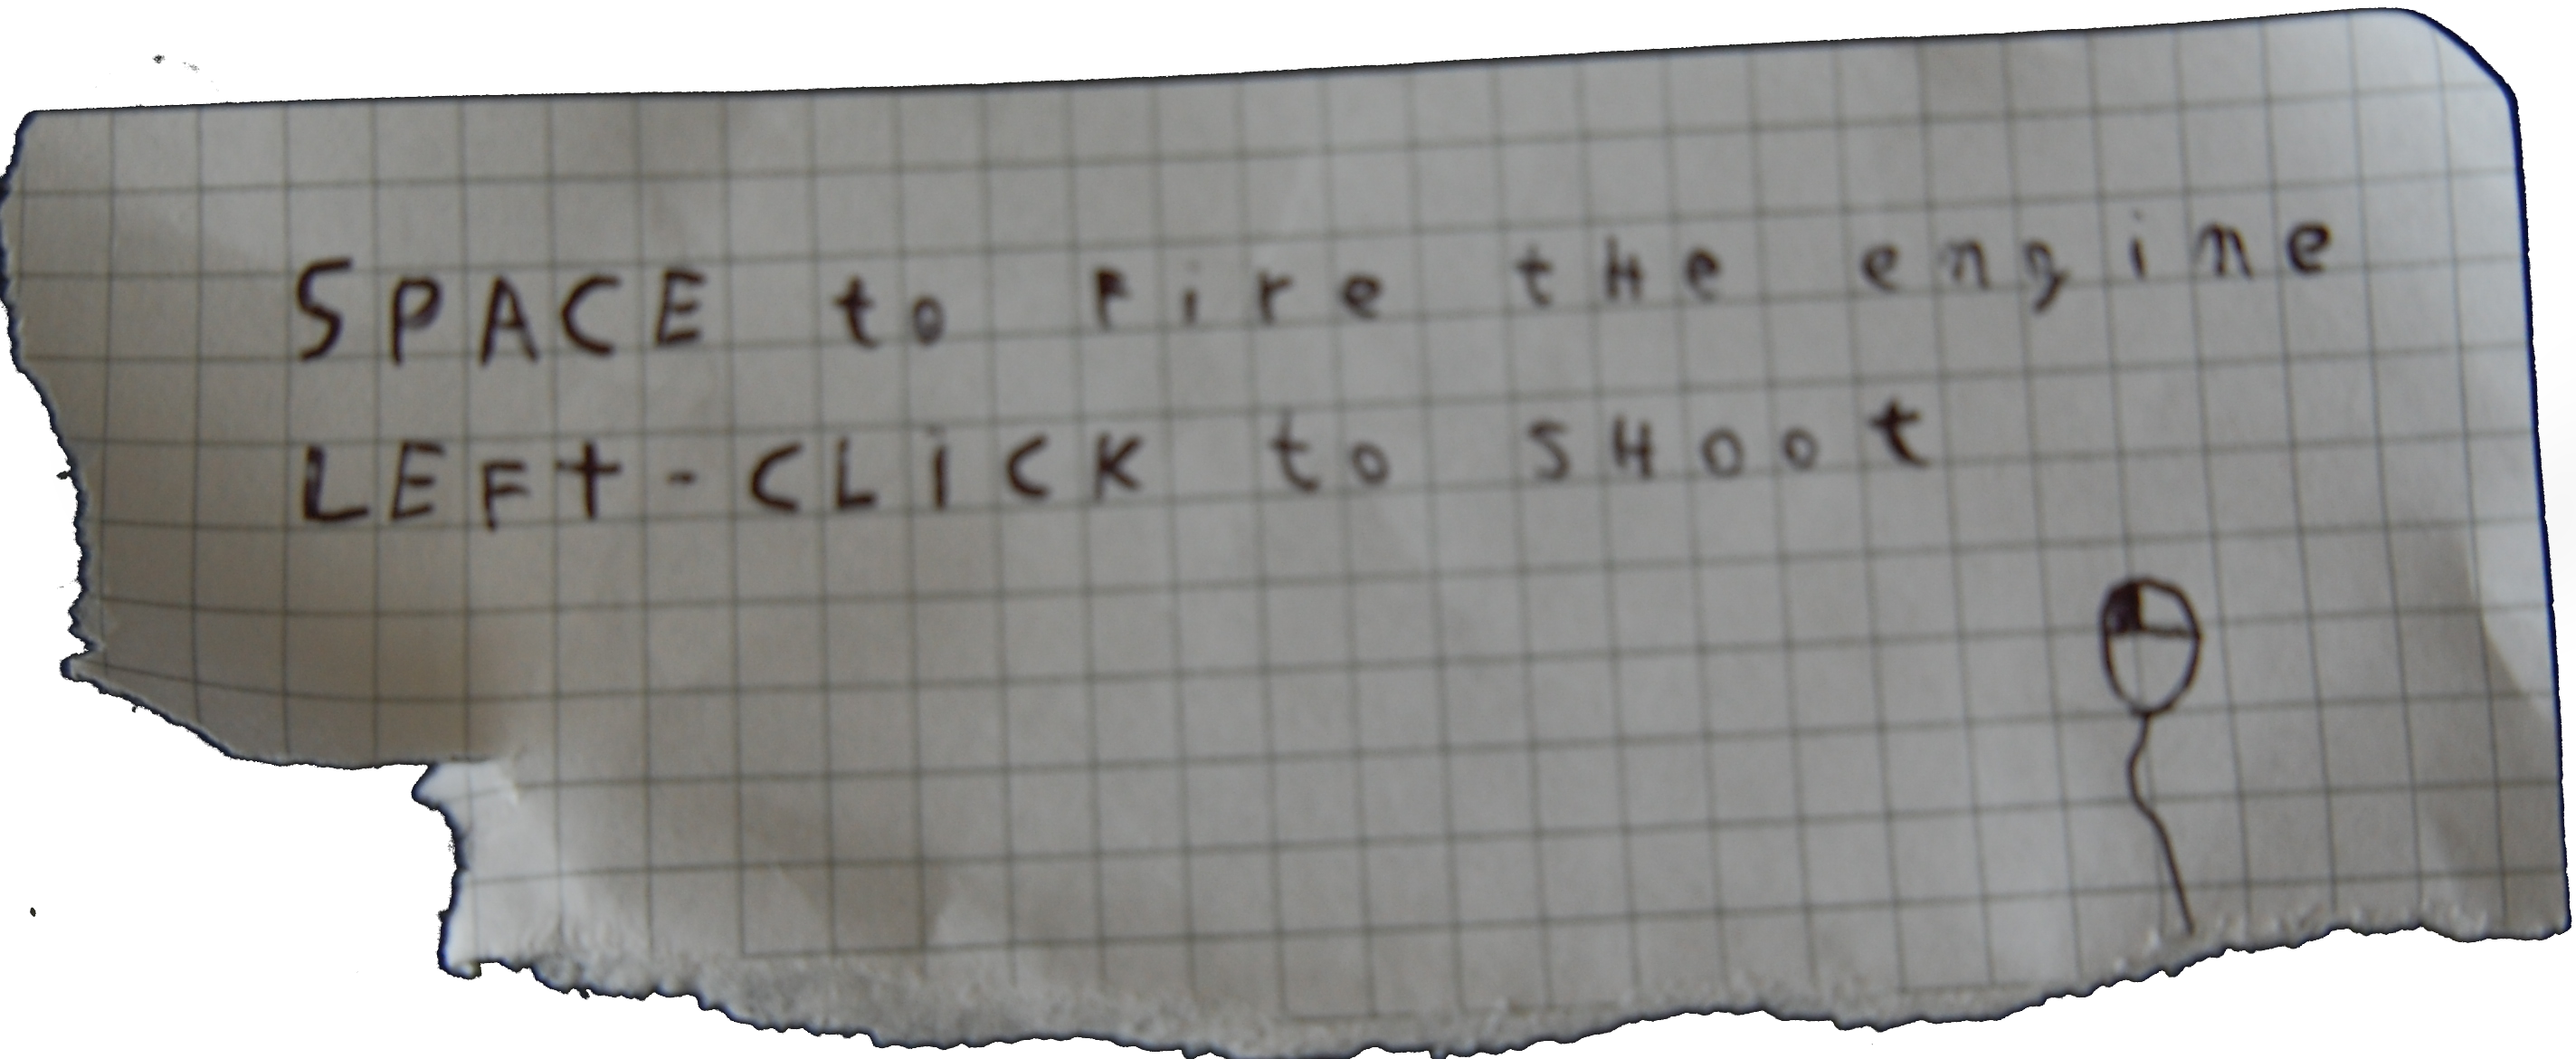 SPACE to Fire the engine
LEFt-CLiCK to SHOot